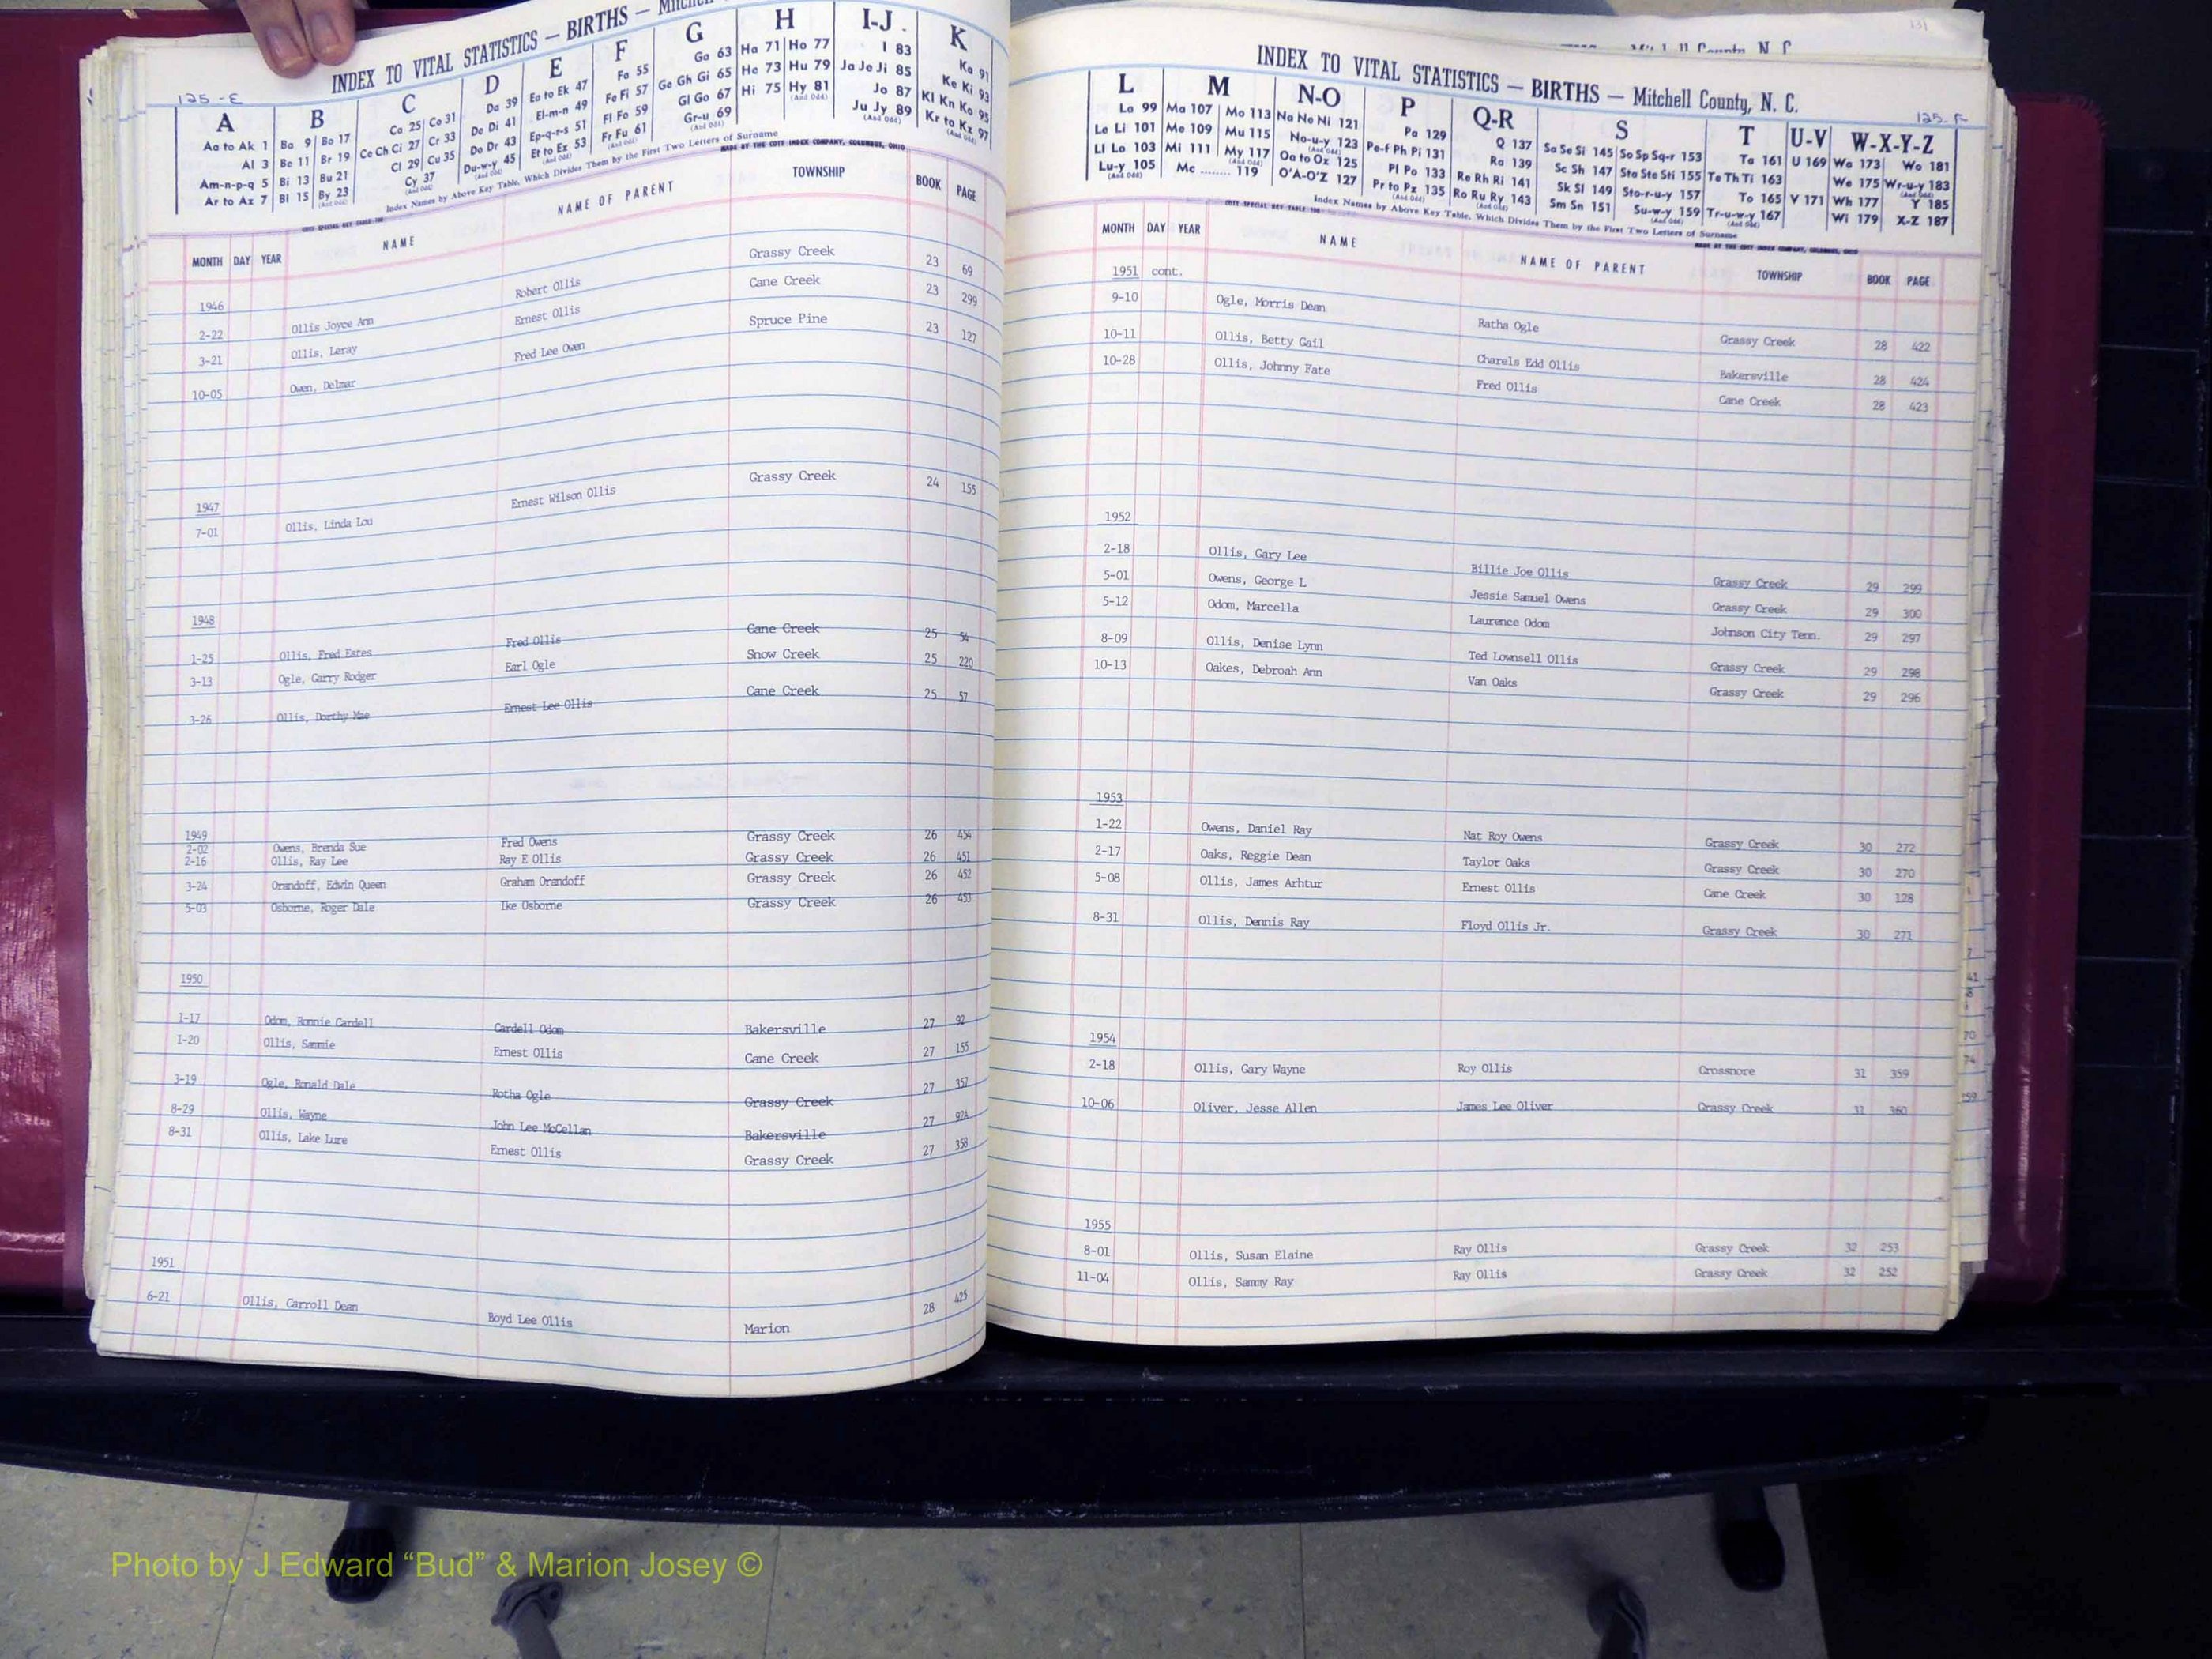 INDEX TO VITAL STATISTICS — BIRTHS —
125-E
A B C D E F G H I-J K
Aa to Ak 1 Ba 9 Bo 17 Ca 25 Co 31 Da 39 Ea to Ek 47 Fa 55 Ga 63 Ha 71 Ho 77 I 83 Ka 91
Al 3 Be 11 Br 19 Ce Ch Ci 27 Cr 33 De Di 41 El-m-n 49 Fe Fi 57 Ge Gh Gi 65 He 73 Hu 79 Ja Je Ji 85 Ke Ki 93
Am-n-p-q 5 Bi 13 Bu 21 Cl 29 Cu 35 Do Dr 43 Ep-q-r-s 51 Fl Fo 59 Gl Go 67 Hi 75 Hy 81 Jo 87 Kl Kn Ko 95
Ar to Az 7 Bl 15 By 23 Cy 37 Du-w-y 45 Et to Ez 53 Fr Fu 61 Gr-u 69 Ju Jy 89 Kr to Kz 97
Index Names by Above Key Table, Which Divides Them by the First Two Letters of Surname
MADE BY THE COTT INDEX COMPANY, COLUMBUS, OHIO
MONTH DAY YEAR NAME NAME OF PARENT TOWNSHIP BOOK PAGE
1946
2-22 Ollis Joyce Ann Robert Ollis Grassy Creek 23 69
3-21 Ollis, Leray Ernest Ollis Cane Creek 23 299
10-05 Owen, Delmar Fred Lee Owen Spruce Pine 23 127
1947
7-01 Ollis, Linda Lou Ernest Wilson Ollis Grassy Creek 24 155
1948
1-25 Ollis, Fred Estes Fred Ollis Cane Creek 25 54
3-13 Ogle, Garry Rodger Earl Ogle Snow Creek 25 220
3-26 Ollis, Dorthy Mae Ernest Lee Ollis Cane Creek 25 57
1949
2-02 Owens, Brenda Sue Fred Owens Grassy Creek 26 454
2-16 Ollis, Ray Lee Ray E Ollis Grassy Creek 26 451
3-24 Orandoff, Edwin Queen Graham Orandoff Grassy Creek 26 452
5-03 Osborne, Roger Dale Ike Osborne Grassy Creek 26 453
1950
1-17 Odom, Ronnie Cardell Cardell Odom Bakersville 27 92
1-20 Ollis, Sammie Ernest Ollis Cane Creek 27 155
3-19 Ogle, Ronald Dale Rotha Ogle Grassy Creek 27 357
8-29 Ollis, Wayne John Lee McCellan Bakersville 27 92A
8-31 Ollis, Lake Lure Ernest Ollis Grassy Creek 27 358
1951
6-21 Ollis, Carroll Dean Boyd Lee Ollis Marion 28 425
131
INDEX TO VITAL STATISTICS — BIRTHS — Mitchell County, N. C.
125-F
L M N-O P Q-R S T U-V W-X-Y-Z
La 99 Ma 107 Mo 113 Na Ne Ni 121 Pa 129 Q 137 Sa Se Si 145 So Sp Sq-r 153 Ta 161 U 169 Wa 173 Wo 181
Le Li 101 Me 109 Mu 115 No-u-y 123 Pe-f Ph Pi 131 Ra 139 Sc Sh 147 Sta Ste Sti 155 Te Th Ti 163 We 175 Wr-u-y 183
Ll Lo 103 Mi 111 My 117 Oa to Oz 125 Pl Po 133 Re Rh Ri 141 Sk Sl 149 Sto-r-u-y 157 To 165 V 171 Wh 177 Y 185
Lu-y 105 Mc ........ 119 O'A-O'Z 127 Pr to Pz 135 Ro Ru Ry 143 Sm Sn 151 Su-w-y 159 Tr-u-w-y 167 Wi 179 X-Z 187
Index Names by Above Key Table, Which Divides Them by the First Two Letters of Surname
MADE BY THE COTT INDEX COMPANY, COLUMBUS, OHIO
MONTH DAY YEAR NAME NAME OF PARENT TOWNSHIP BOOK PAGE
1951 cont.
9-10 Ogle, Morris Dean Ratha Ogle Grassy Creek 28 422
10-11 Ollis, Betty Gail Charels Edd Ollis Bakersville 28 424
10-28 Ollis, Johnny Fate Fred Ollis Cane Creek 28 423
1952
2-18 Ollis, Gary Lee Billie Joe Ollis Grassy Creek 29 299
5-01 Owens, George L Jessie Samuel Owens Grassy Creek 29 300
5-12 Odom, Marcella Laurence Odom Johnson City Tenn. 29 297
8-09 Ollis, Denise Lynn Ted Lownsell Ollis Grassy Creek 29 298
10-13 Oakes, Debroah Ann Van Oaks Grassy Creek 29 296
1953
1-22 Owens, Daniel Ray Nat Roy Owens Grassy Creek 30 272
2-17 Oaks, Reggie Dean Taylor Oaks Grassy Creek 30 270
5-08 Ollis, James Arhtur Ernest Ollis Cane Creek 30 128
8-31 Ollis, Dennis Ray Floyd Ollis Jr. Grassy Creek 30 271
1954
2-18 Ollis, Gary Wayne Roy Ollis Crossnore 31 359
10-06 Oliver, Jesse Allen James Lee Oliver Grassy Creek 31 360
1955
8-01 Ollis, Susan Elaine Ray Ollis Grassy Creek 32 253
11-04 Ollis, Sammy Ray Ray Ollis Grassy Creek 32 252
Photo by J Edward “Bud” & Marion Josey ©